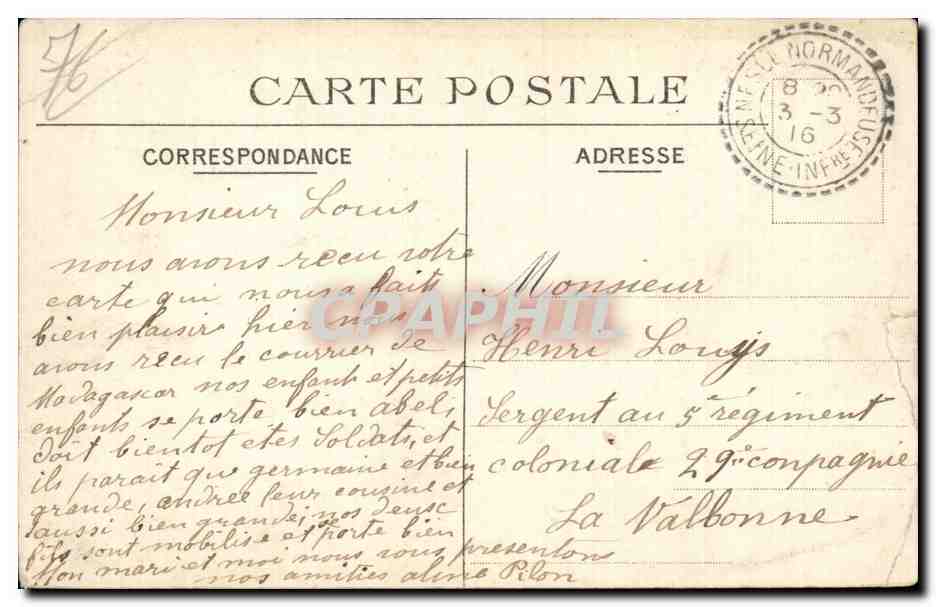 76
CARTE POSTALE
NESLE NORMANDEUSE
8
3 -3
16
SEINE-INFRE
CORRESPONDANCE
ADRESSE
Monsieur Louis
nous avons recu votre
carte qui nous a fait
bien plaisir hier nous
avons recu le courrier de
Madagascar nos enfant et petits
enfants se porte bien abel
doit bientot etes Soldats, et
ils parait que germaine et bien
grande, andrée leur cousine et
aussi bien grande, nos deux
fils sont mobilise et porte bien
Mon mari et moi nous vous presentons
nos amities aline Pilon
Monsieur
Henri Louys
Sergent au 5e régiment
coloniale 29e conpagnie
La Valbonne
CPAPHIL